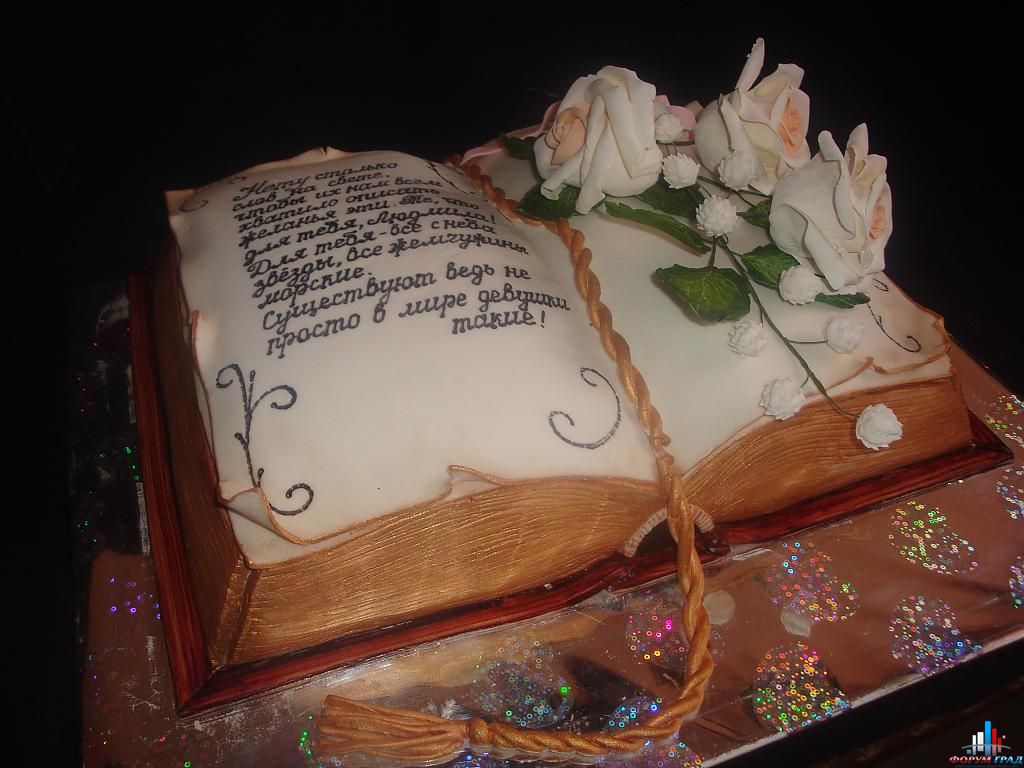 Нету столько
слов на свете,
чтобы их нам всем
хватило описать
желанья эти. Те, что
для тебя, Людмила!
Для тебя - все с неба
звёзды, все жемчужины
морские.
Существуют ведь не
просто в мире девушки
такие!
ФОРУМ ГРАД